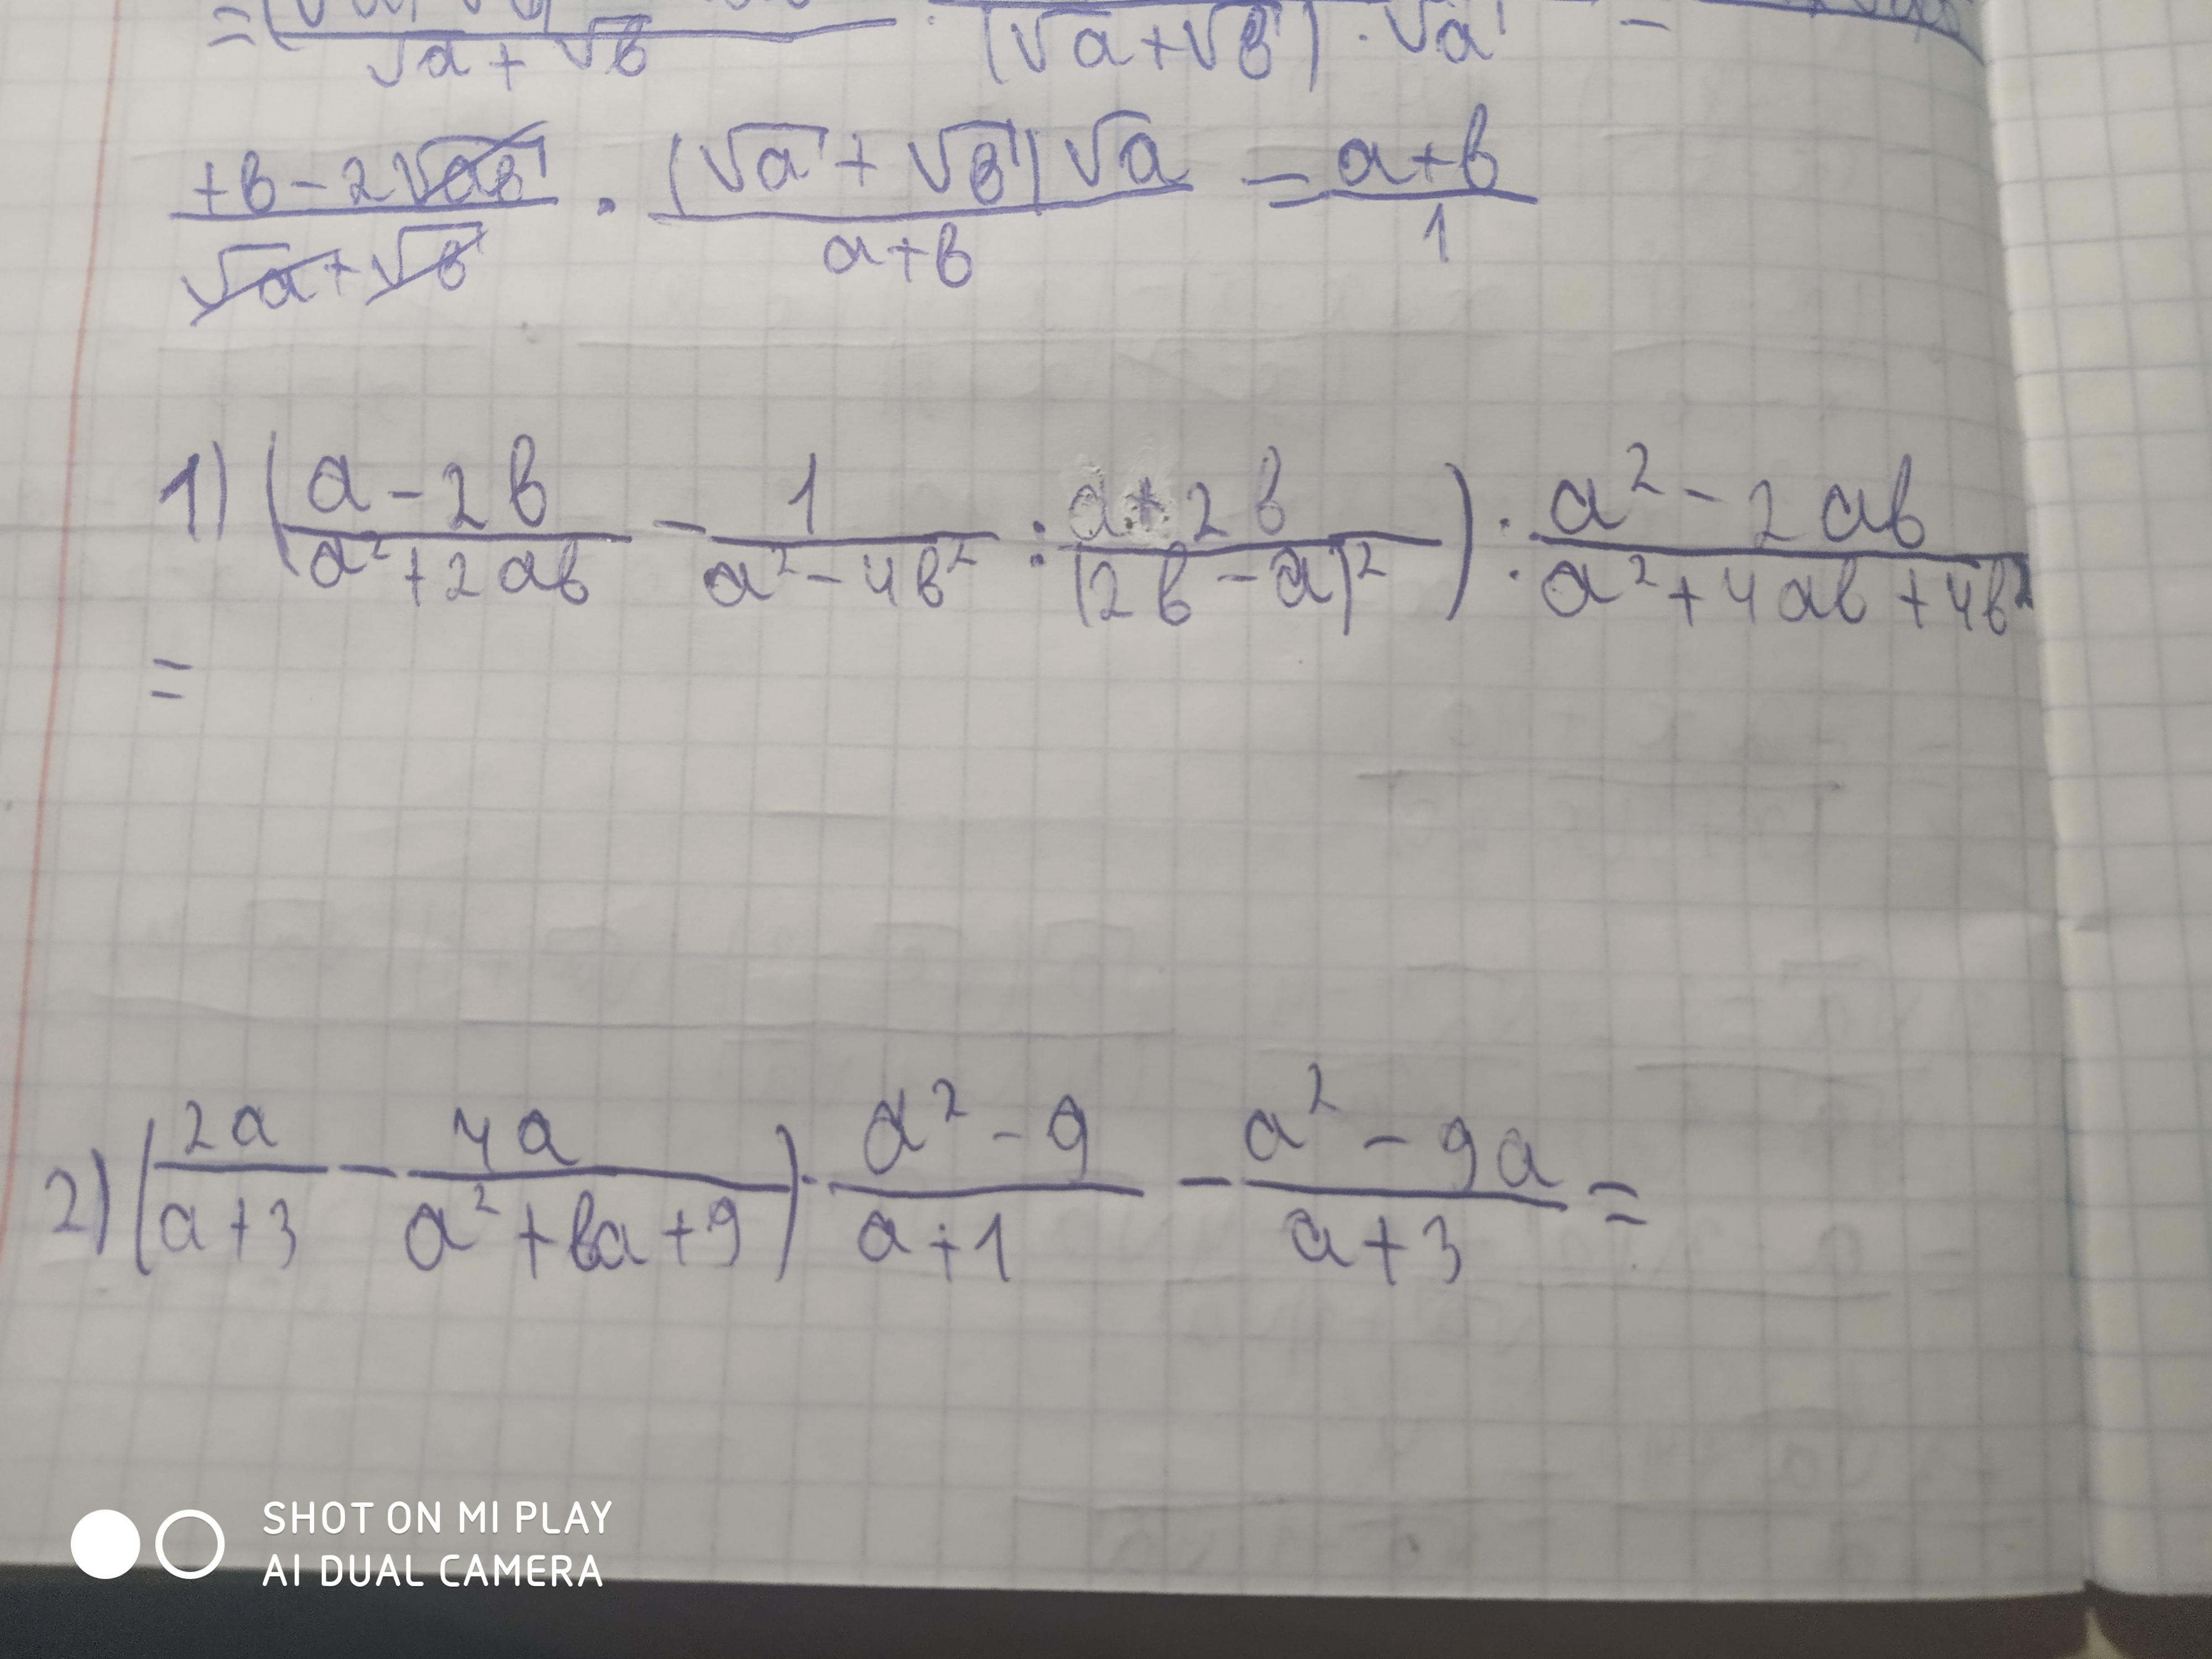 √a + √в (√a+√в) · √a =
+в-2√aв / √a+√в · (√a + √в)√a / a+в = a+в / 1
1) (a-2в / a²+2aв - 1 / a²-4в² : a+2в / (2в-a)²) : a²-2aв / a²+4aв+4в²
=
2) (2a / a+3 - 4a / a²+6a+9) · a²-9 / a+1 - a²-9a / a+3 =
SHOT ON MI PLAY
AI DUAL CAMERA